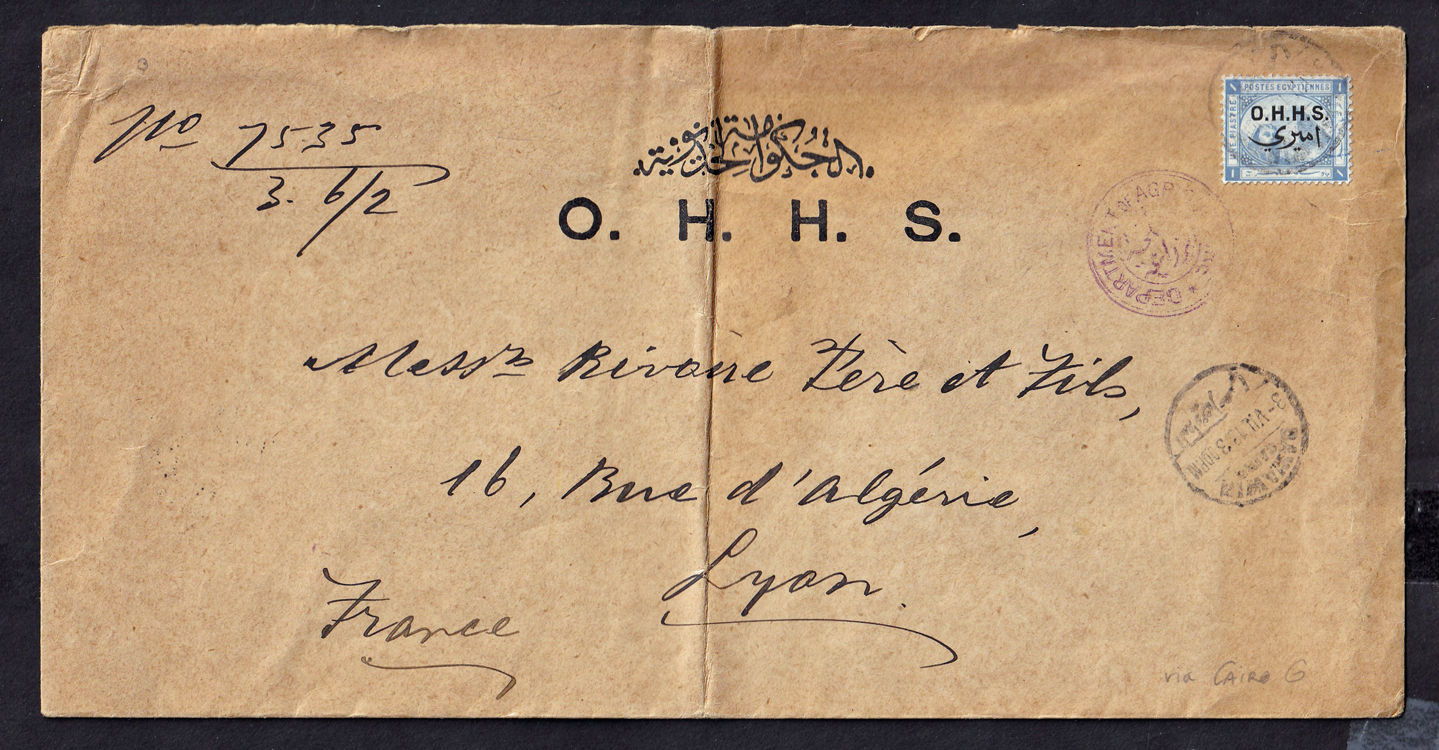 No 7535
3. 6/2
الحكومة الخديوية
O. H. H. S.
POSTES EGYPTIENNES
O.H.H.S.
اميري
DEPARTMENT OF
Messrs Rivoire Père et Fils,
16, Rue d'Algérie,
Lyon.
France
via CAIRO G